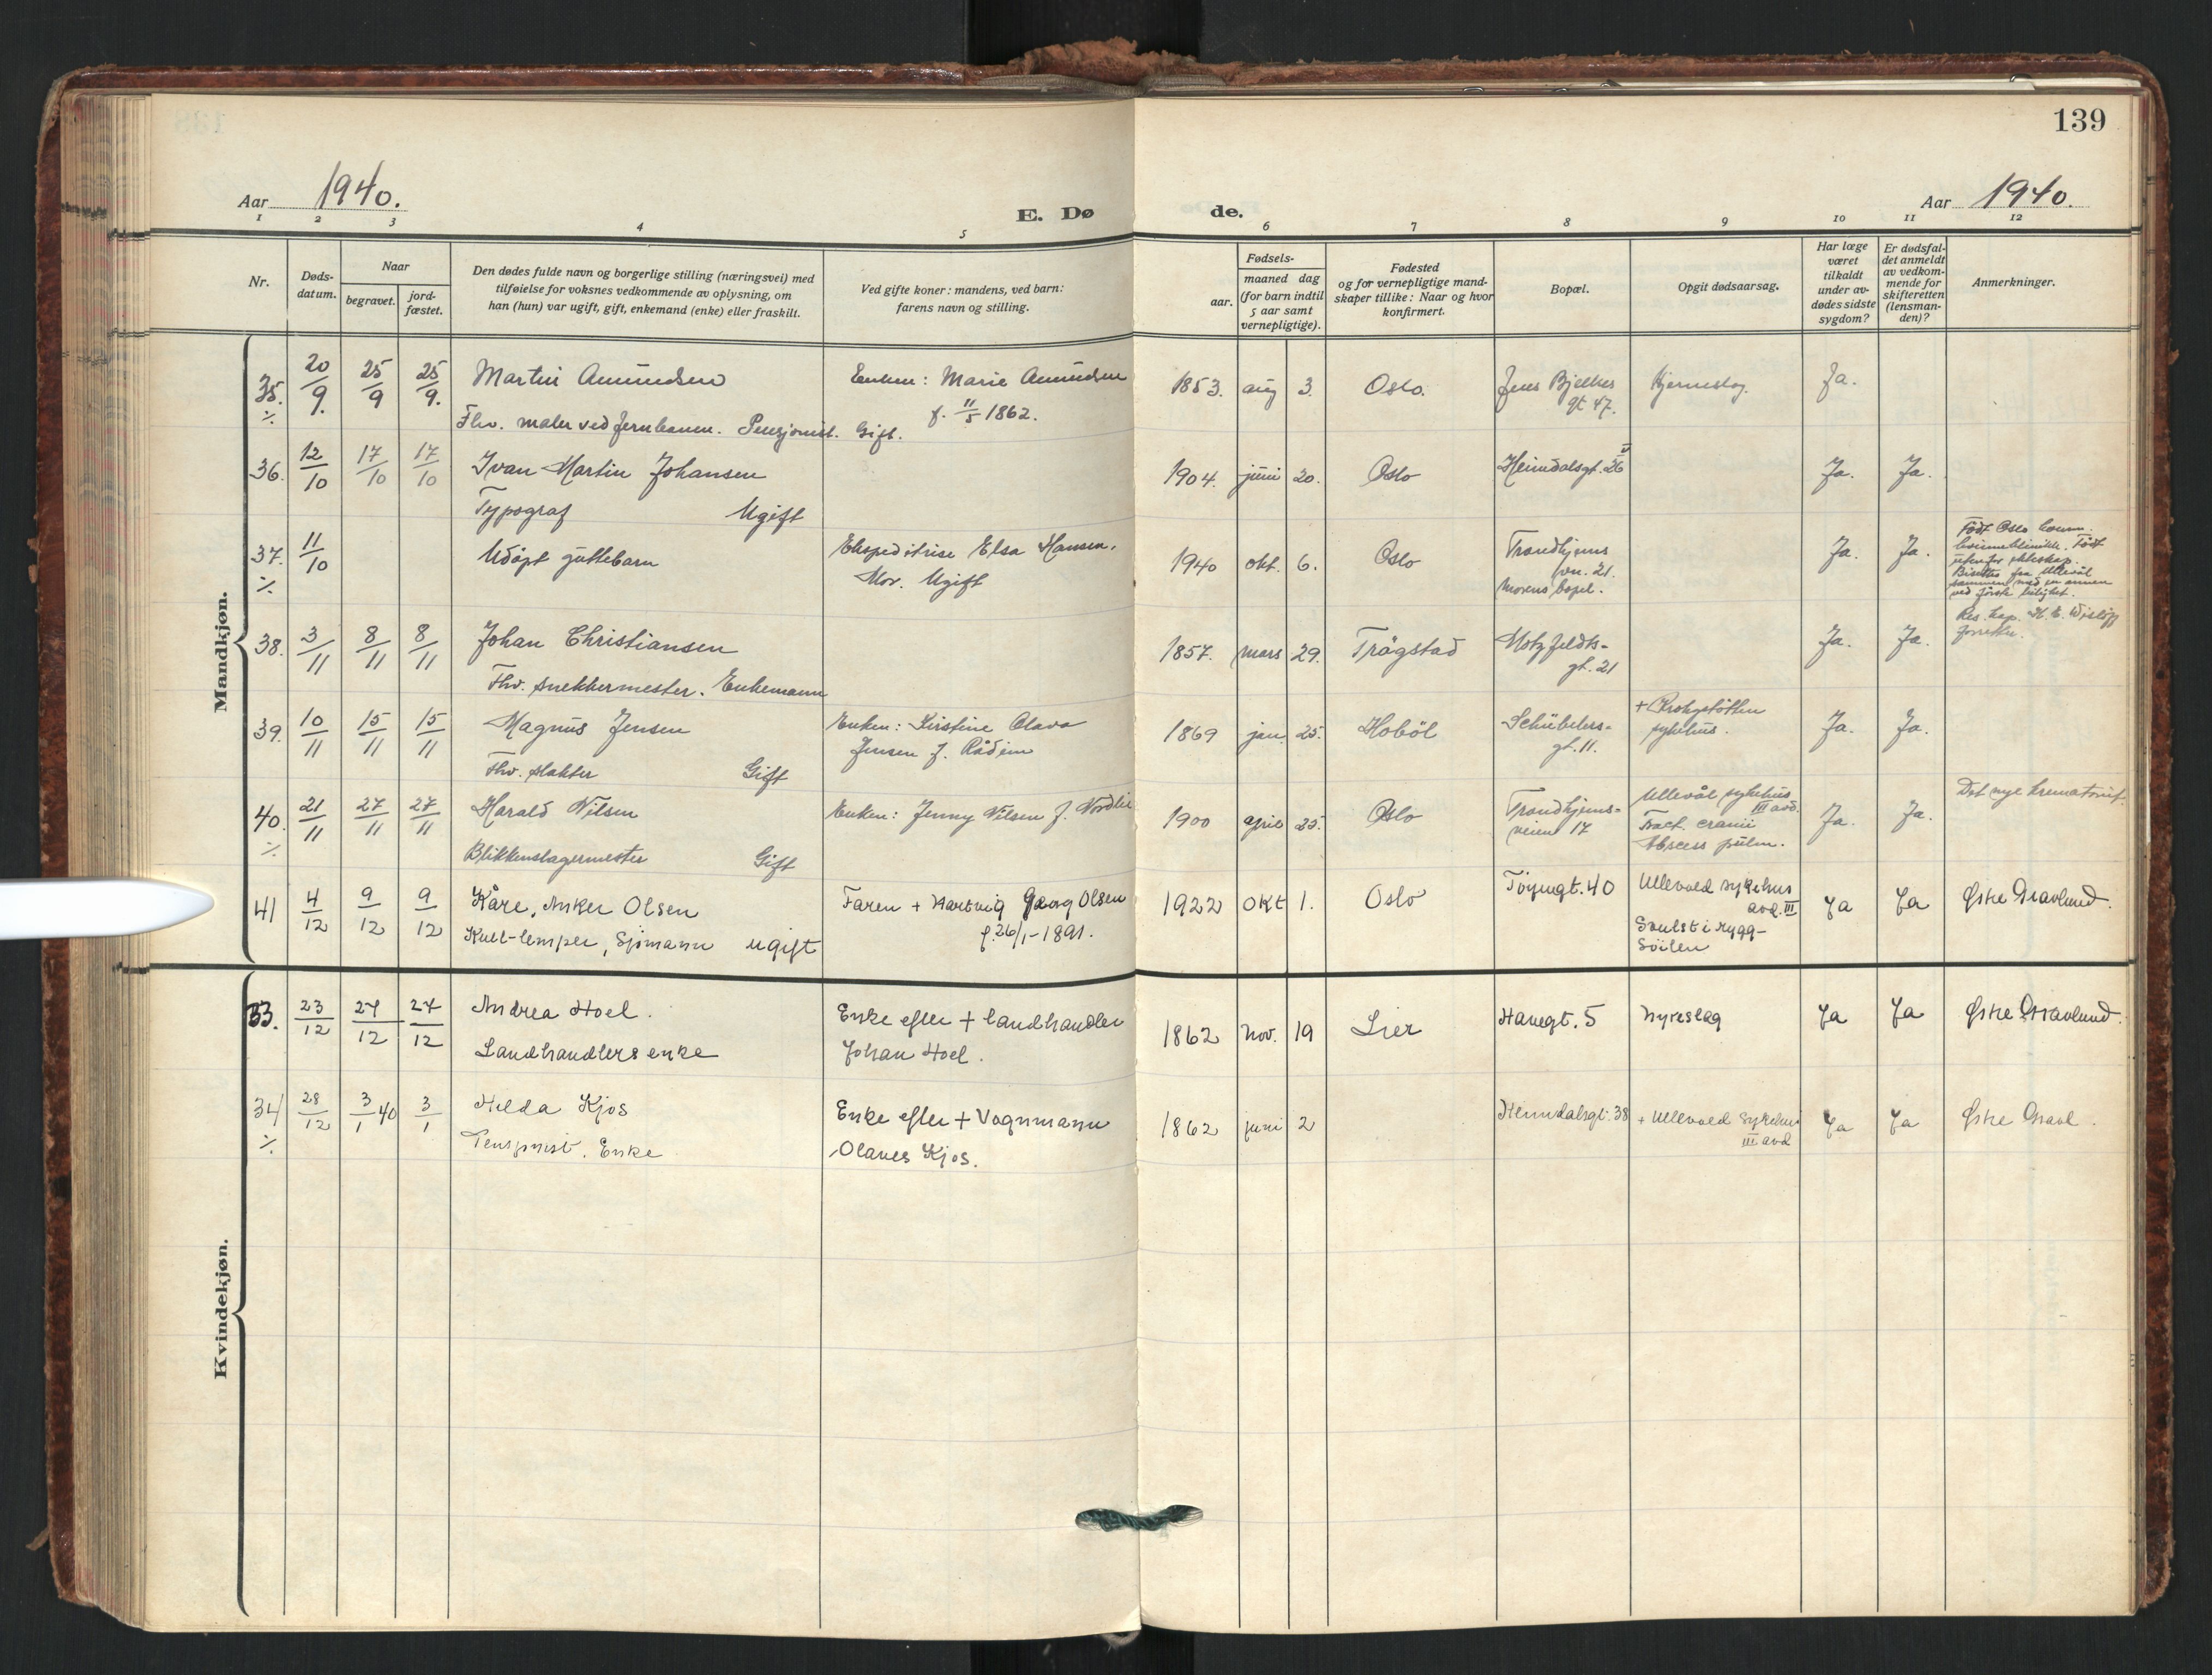 139
Aar 1940.
E. Dø de.
Aar 1940.
1 2 3 4 5 6 7 8 9 10 11 12
Nr.
Døds-
datum.
Naar
begravet.
jord-
fæstet.
Den dødes fulde navn og borgerlige stilling (næringsvei) med
tilføielse for voksnes vedkommende av oplysning, om
han (hun) var ugift, gift, enkemand (enke) eller fraskilt.
Ved gifte koner: mandens, ved barn:
farens navn og stilling.
Fødsels-
aar.
maaned dag
(for barn indtil
5 aar samt
vernepligtige).
Fødested
og for vernepligtige mand-
skaper tillike: Naar og hvor
konfirmert.
Bopæl.
Opgit dødsaarsag.
Har læge
været
tilkaldt
under av-
dødes sidste
sygdom?
Er dødsfal-
det anmeldt
av vedkom-
mende for
skifteretten
(lensman-
den)?
Anmerkninger.
Mandkjøn.
35. 20/9. 25/9 25/9. Martin Amundsen Enken: Marie Amundsen 1853. aug 3. Oslo. Jens Bjelkes Hjerneslag. Ja.
Fhv. maler ved Jernbanen. Pensjonist. Gift. f. 11/5 1862. gt 47.
36. 12/10 17/10 17/10 Ivan Martin Johansen 1904. juni 20. Oslo Heimdalsgt. 26 Ja. Ja.
Typograf Ugift
37. 11/10 Udøpt guttebarn Ekspeditrise Elsa Hansen. 1940 okt. 6. Oslo Trondhjems Ja. Ja. Født Oslo komm.
Mor. Ugift vn. 21. kvinneklinikk. Født
morens bopel. utenfor ekteskap.
Bisettes fra Ullevål
sammen med en annen
ved første leilighet.
38. 3/11 8/11 8/11 Johan Christiansen 1857. mars 29. Trøgstad Motzfeldts- Ja. Ja. Res. kap.
Fhv. snekkermester. Enkemann gt. 21 forrettet.
39. 10/11 15/11 15/11 Magnus Jensen Enken: Kirstine Olava 1869 jan. 25. Hobøl Schübelers- + Krohgstøtten Ja. Ja.
Jensen f. Rådim gt. 11. sykehus.
Fhv. slakter Gift
40. 21/11 27/11 27/11 Harald Nilsen Enken: Jenny Nilsen f. Nordlie 1900 april 25. Oslo Trondhjems- Ullevål sykehus Ja. Ja. Det nye krematorium.
veien 17 III avd.
Fract. cranii
Blikkenslagermester Gift Abscess pulm.
41 4/12 9/12 9/12 Kåre, Anker Olsen Faren + Hartvig Georg Olsen 1922 okt 1. Oslo Tøyengt. 40 Ullevold sykehus Ja Ja Østre Gravlund.
avd. III
Kull-lemper, Sjømann ugift f. 26/1-1891. Svulst i rygg-
søilen
Kvindekjøn.
33. 23/12 27/12 27/12 Andrea Hoel. Enke efter + landhandler 1862 nov. 19 Lier Havegt. 5 Nyreslag Ja Ja Østre Gravlund.
Landhandlers enke Johan Hoel.
34 28/12 3/1 40 3/1 Hilda Kjos Enke efter + Vognmann 1862 juni 2 Heimdalsgt. 38 + Ullevold Sykehus Ja Ja Østre Gravl.
Pensjonist. Enke Olaves Kjos. III avd